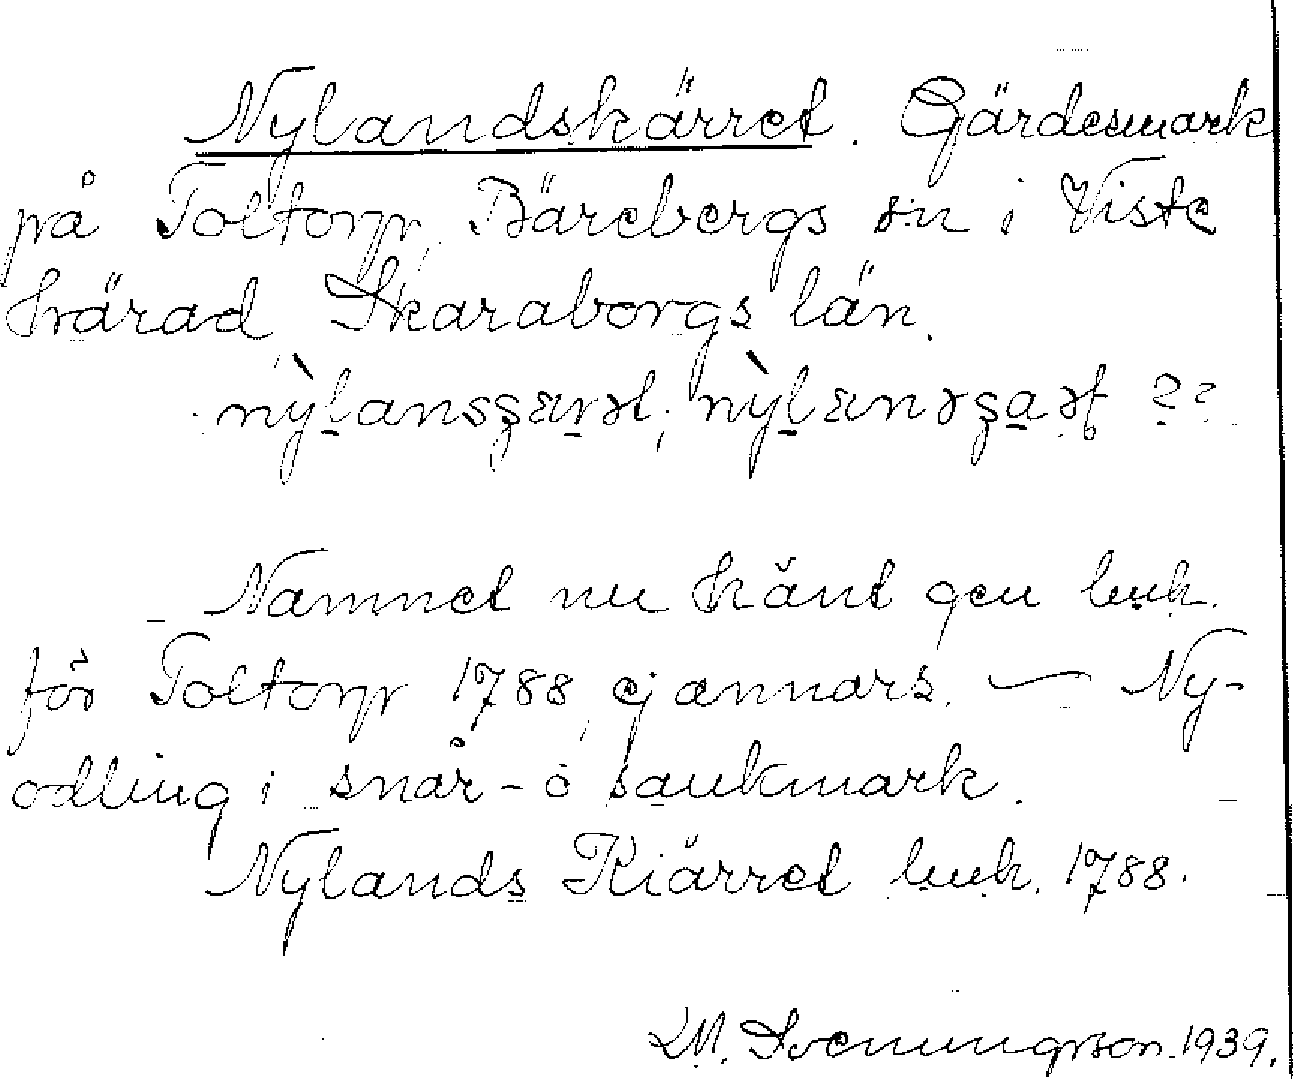 Nylandskärret. Gärdesmark
på Toltorp, Bärebergs sn i Viste
härad, Skaraborgs län.
Namnet nu känt gen lmk.
för Toltorp 1788, ej annars. — Ny-
odling i snår- o sankmark.
Nylands Kiärret lmk. 1788.
LM. Svenungsson. 1939.